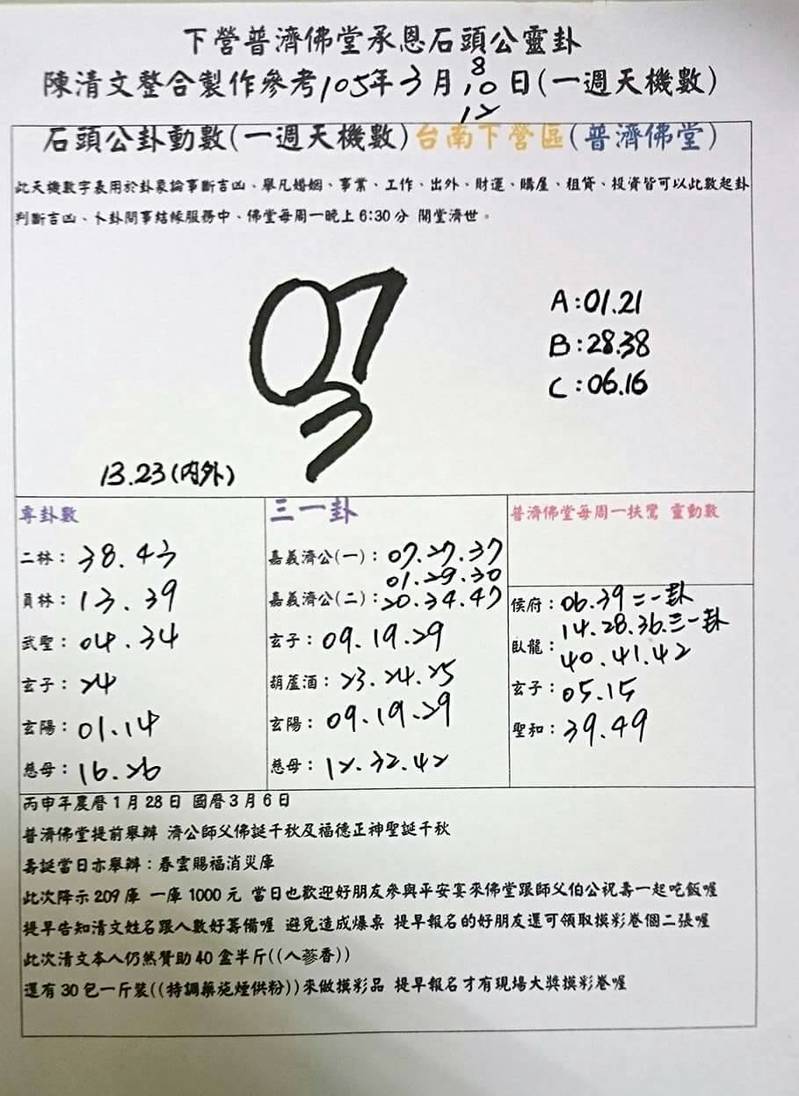 下營普濟佛堂承恩石頭公靈卦
陳清文整合製作參考105年3月8.10.12日(一週天機數)
石頭公卦動數(一週天機數)台南下營區(普濟佛堂)
此天機數字表用於卦象論事斷吉凶、舉凡婚姻、事業、工作、出外、財運、購屋、租貸、投資皆可以此數起卦
判斷吉凶、卜卦問事結緣服務中、佛堂每周一晚上6:30分 開堂濟世。
07
3
A:01.21
B:28.38
C:06.16
13.23(內外)
專卦數
二林:38.43
員林:13.39
武聖:04.34
玄子:24
玄陽:01.14
慈母:16.26
三一卦
嘉義濟公(一):07.27.37
01.29.30
嘉義濟公(二):20.34.47
玄子:09.19.29
葫蘆酒:23.24.25
玄陽:09.19.29
慈母:12.32.42
普濟佛堂每周一扶鸞 靈動數
侯府:06.39二一卦
14.28.36三一卦
臥龍:40.41.42
玄子:05.15
聖和:39.49
丙申年農曆1月28日 國曆3月6日
普濟佛堂提前舉辦 濟公師父佛誕千秋及福德正神聖誕千秋
壽誕當日亦舉辦:春雲賜福消災庫
此次降示209庫 一庫1000元 當日也歡迎好朋友參與平安宴來佛堂跟師父伯公祝壽一起吃飯喔
提早告知清文姓名跟人數好籌備喔 避免造成爆桌 提早報名的好朋友還可領取摸彩卷個二張喔
此次清文本人仍然贊助40盒半斤((人蔘香))
還有30包一斤裝((特調藥施煙供粉))來做摸彩品 提早報名才有現場大獎摸彩卷喔